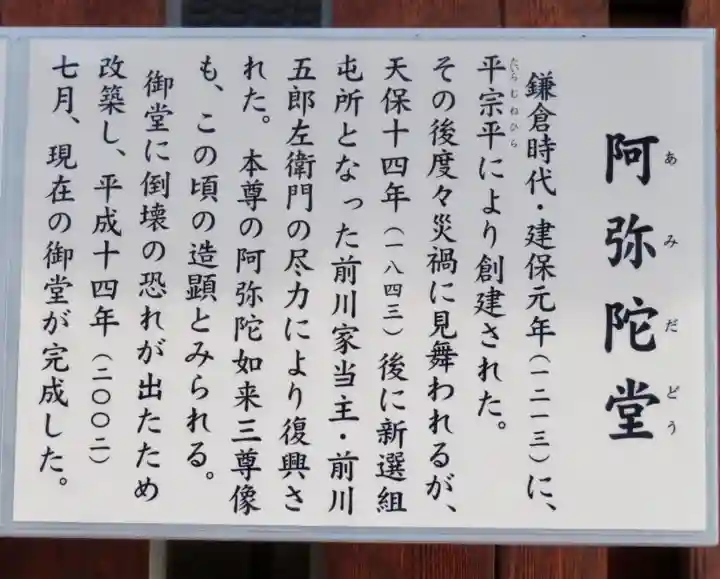 阿弥陀堂
あみだどう
鎌倉時代・建保元年(一二一三)に、
平宗平により創建された。
たいらむねひら
その後度々災禍に見舞われるが、
天保十四年(一八四三)後に新選組
屯所となった前川家当主・前川
五郎左衛門の尽力により復興さ
れた。本尊の阿弥陀如来三尊像
も、この頃の造顕とみられる。
御堂に倒壊の恐れが出たため
改築し、平成十四年(二〇〇二)
七月、現在の御堂が完成した。